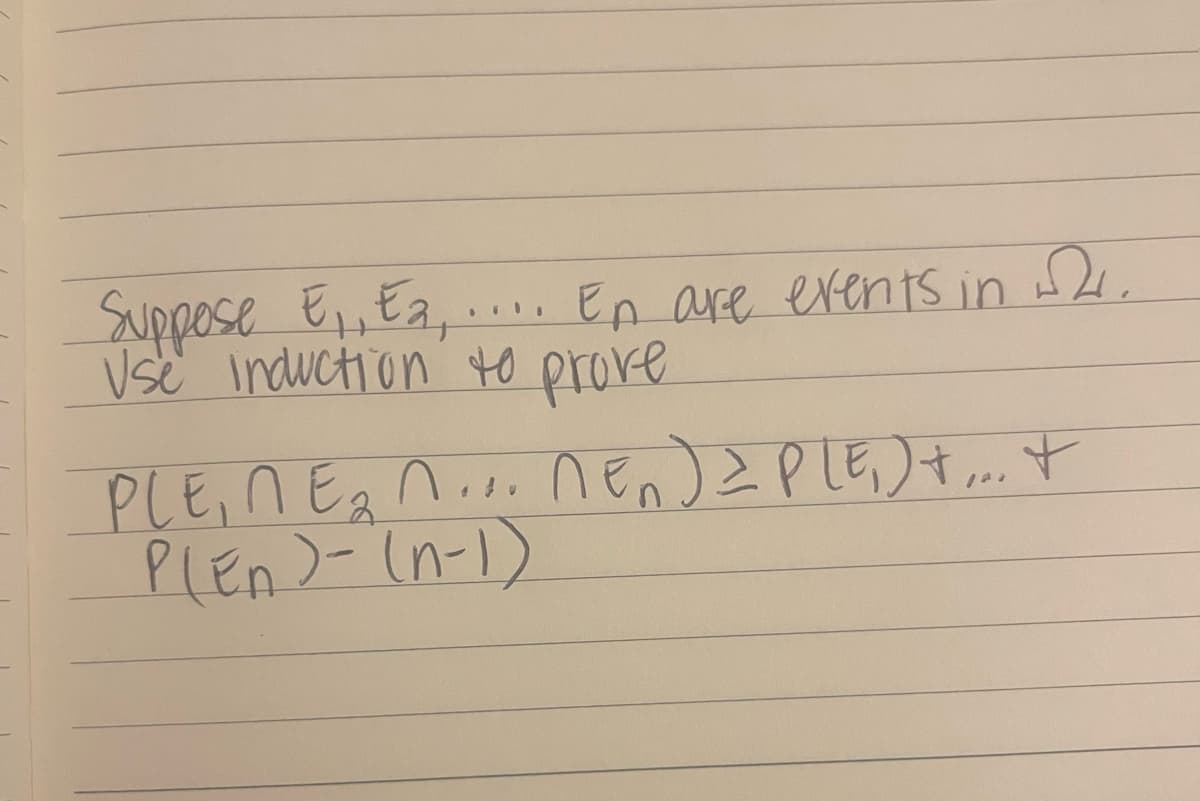 Suppose E₁, E₂, .... En are events in Ω.
Use induction to prove
P(E₁ ∩ E₂ ∩ ... ∩ En) ≥ P(E₁) + ... +
P(En) - (n-1)